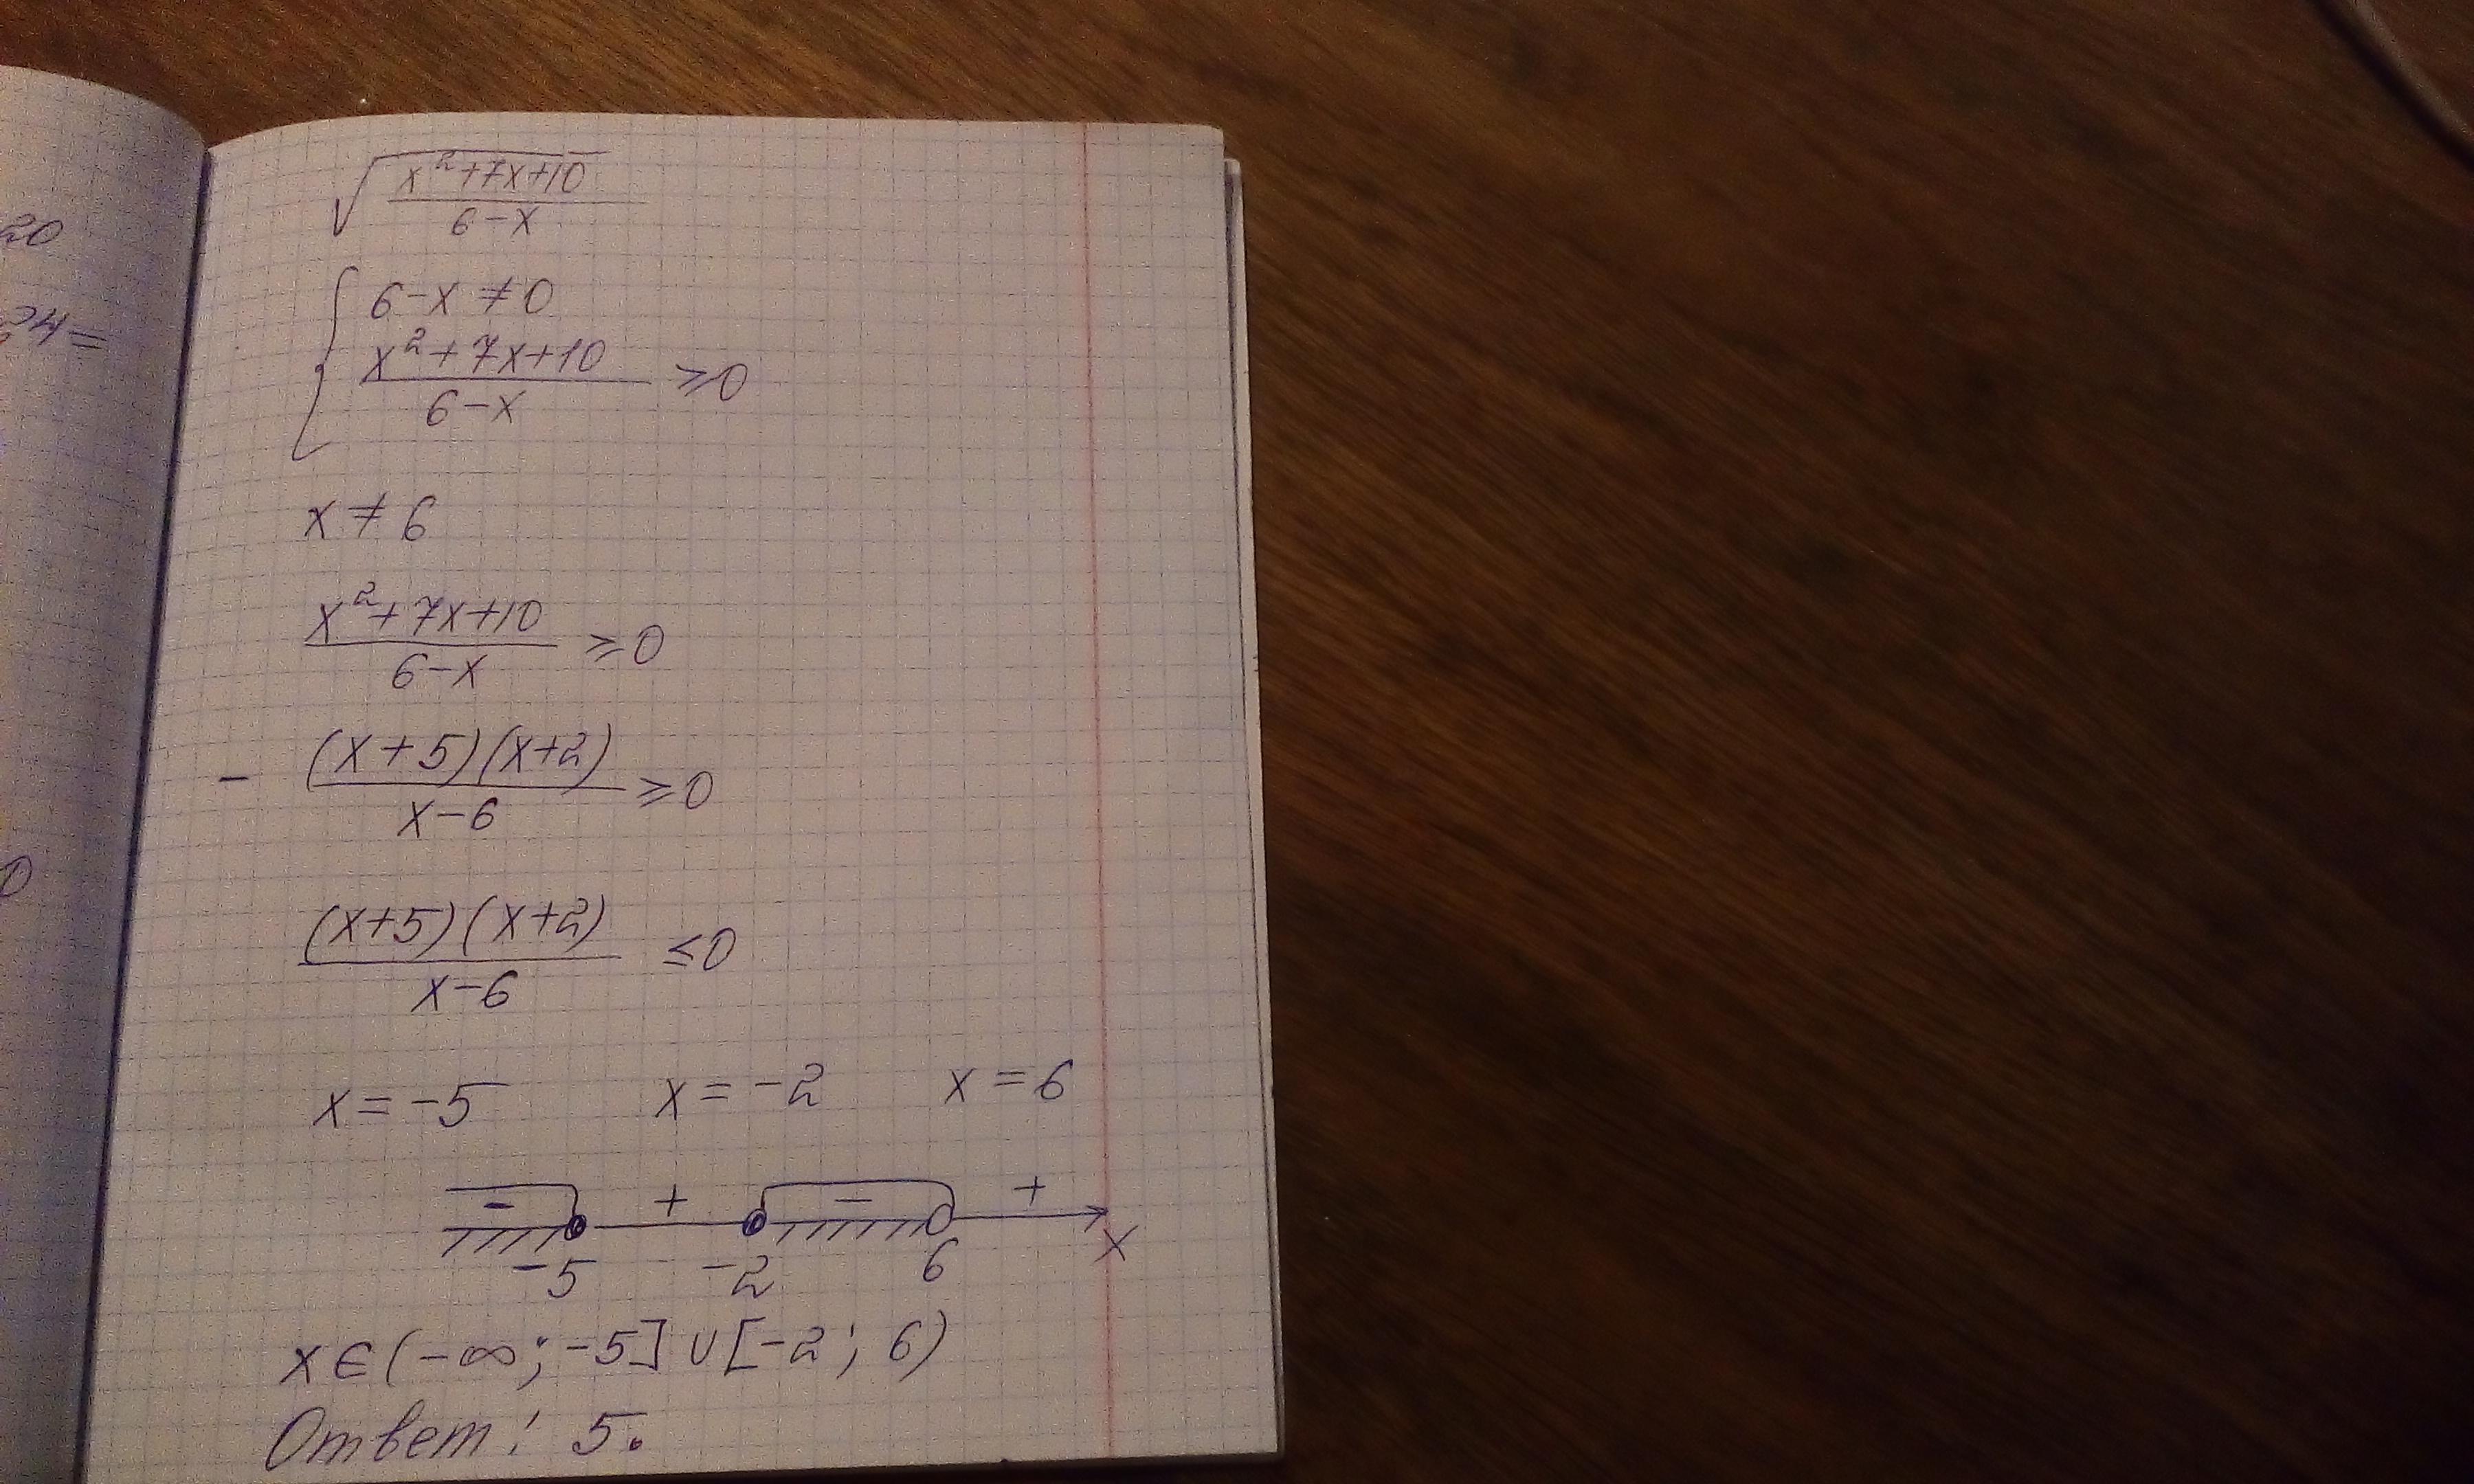 20
24=
0
√((x²+7x+10)/(6-x))
{ 6-x ≠ 0
(x²+7x+10)/(6-x) ≥ 0
x ≠ 6
(x²+7x+10)/(6-x) ≥ 0
- ((x+5)(x+2))/(x-6) ≥ 0
((x+5)(x+2))/(x-6) ≤ 0
x = -5 x = -2 x = 6
- + - +
-5 -2 6 x
x ∈ (-∞; -5] ∪ [-2; 6)
Ответ: 5.